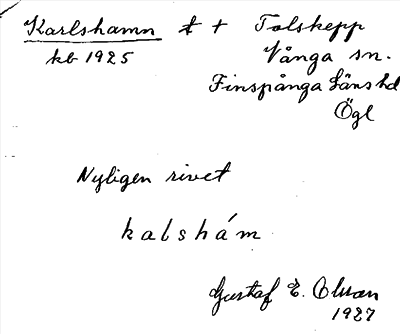 Karlshamn t + Tolskepp
kb 1925 Vånga sn.
Finspånga Läns hd
Ögl
Nyligen rivet
kalshám
Gustaf E. Olsson
1927